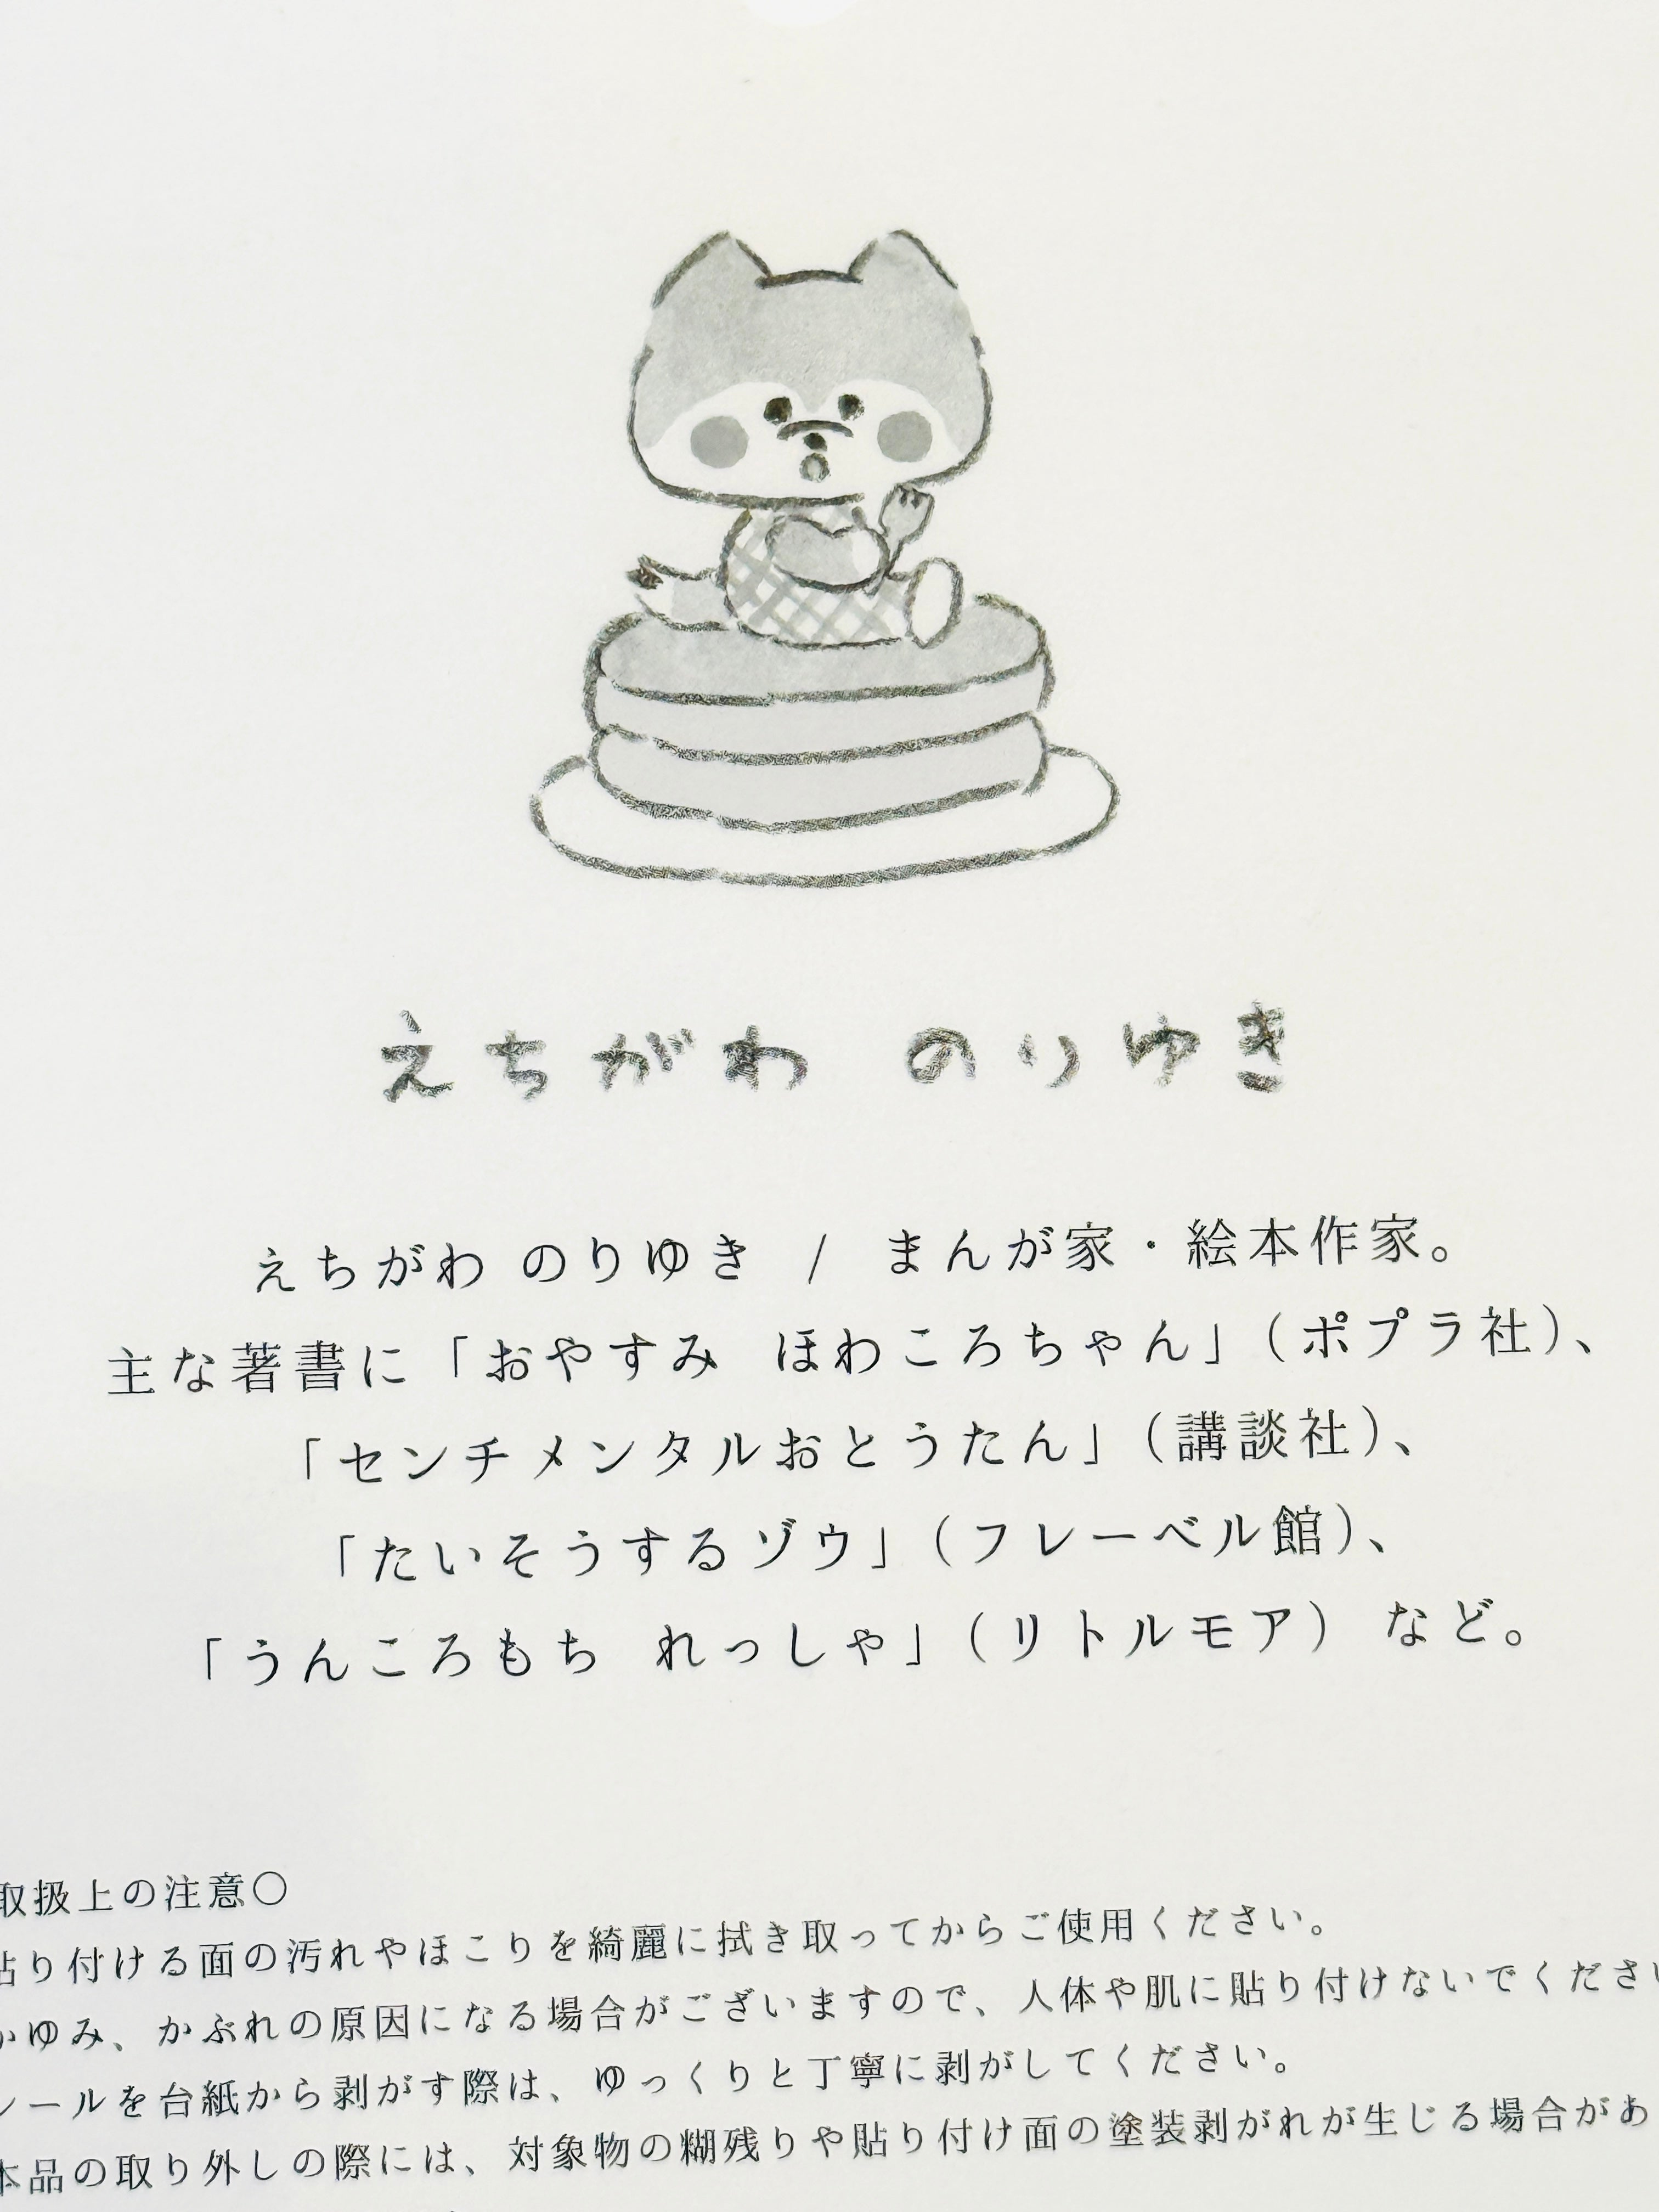 えちがわ のりゆき
えちがわ のりゆき / まんが家・絵本作家。
主な著書に「おやすみ ほわころちゃん」(ポプラ社)、
「センチメンタルおとうたん」(講談社)、
「たいそうするゾウ」(フレーベル館)、
「うんころもち れっしゃ」(リトルモア) など。
取扱上の注意〇
貼り付ける面の汚れやほこりを綺麗に拭き取ってからご使用ください。
かゆみ、かぶれの原因になる場合がございますので、人体や肌に貼り付けないでください
シールを台紙から剥がす際は、ゆっくりと丁寧に剥がしてください。
本品の取り外しの際には、対象物の糊残りや貼り付け面の塗装剥がれが生じる場合があ